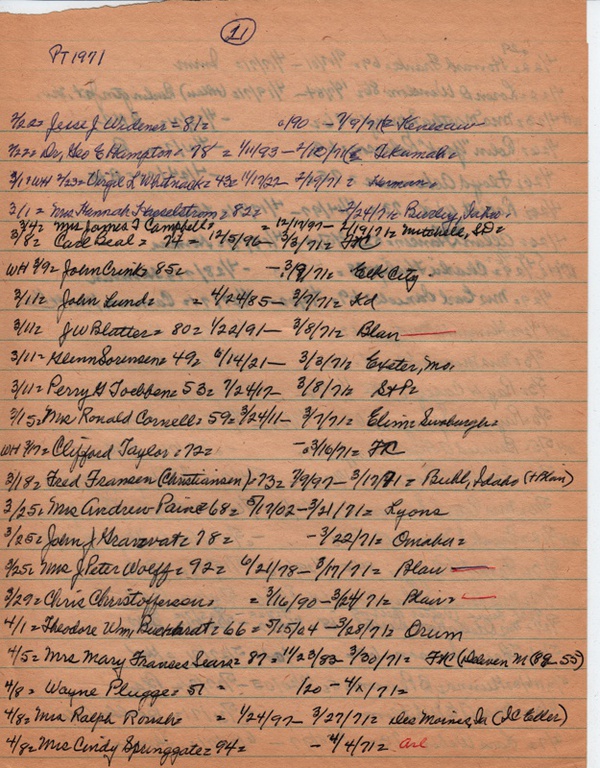 11
PT 1971
2/22= Jesse J Widener = 81= 0/90 - 2/9/71= Kenesaw
2/22= Dr, Geo E Hampton= 78 = 1/11/93 - 2/12/71= Tekamah=
3/1= WH 2/23= Virgil L Whitnack= 43= 1/17/22 - 2/19/71= Herman=
3/1= Mrs Hannah Hasselstrom= 82= 2/24/71= Idaho=
3/4= Mrs James T Campbell= = 12/17/97 - 2/19/71= Mitchell, S.D=
3/8= Carl Beal= 74 = 12/5/96 - 3/3/71= FC
WH 3/9= John Crink= 85= - 3/9/71= Elk City
3/11= John Lund= = 4/24/85 - 3/7/71= Kd
3/11= JW Blatter = 80= 1/22/91 - 3/8/71= Blair
3/11= Glenn Sorensen= 49= 6/14/21 - 3/3/71= Exeter, Mo.
3/11= Perry G Toebben= 53= 7/24/17 - 3/8/71= StP=
3/15= Mrs Ronald Cornell= 59= 3/24/11 - 3/7/71= Elim= Swaburgh=
WH 3/17= Clifford Taylor= 72= - 3/16/71= FC
3/18= Fred Fransen (Christiansen)= 73= 7/9/97 - 3/17/71= Buhl, Idaho (+Blair)
3/25= Mrs Andrew Paine= 68= 5/17/02 - 3/21/71= Lyons
3/25= John J Granzvat= 78= - 3/22/71= Omaha=
3/25= Mrs J Peter Wolff= 92= 6/21/78 - 3/17/71= Blair
3/29= Chris Christofferson= = 3/16/90 - 3/24/71= Blair=
4/1= Theodore Wm, Burkhardt= 66= 5/15/04 - 3/28/71= Orum
4/5= Mrs Mary Frances Sears= 87= 11/23/83 - 3/30/71= FC (Dolven M (P8-55)
4/8= Wayne Plugge= 51 = 1/20 - 4/x/71=
4/8= Mrs Ralph Roush= = 1/24/97 - 3/27/71= Des Moines, Ia (JC Eller)
4/8= Mrs Cindy Springgate= 94= - 4/4/71= Arl